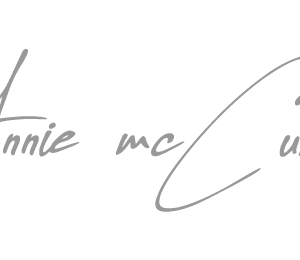 Annie mc Cu